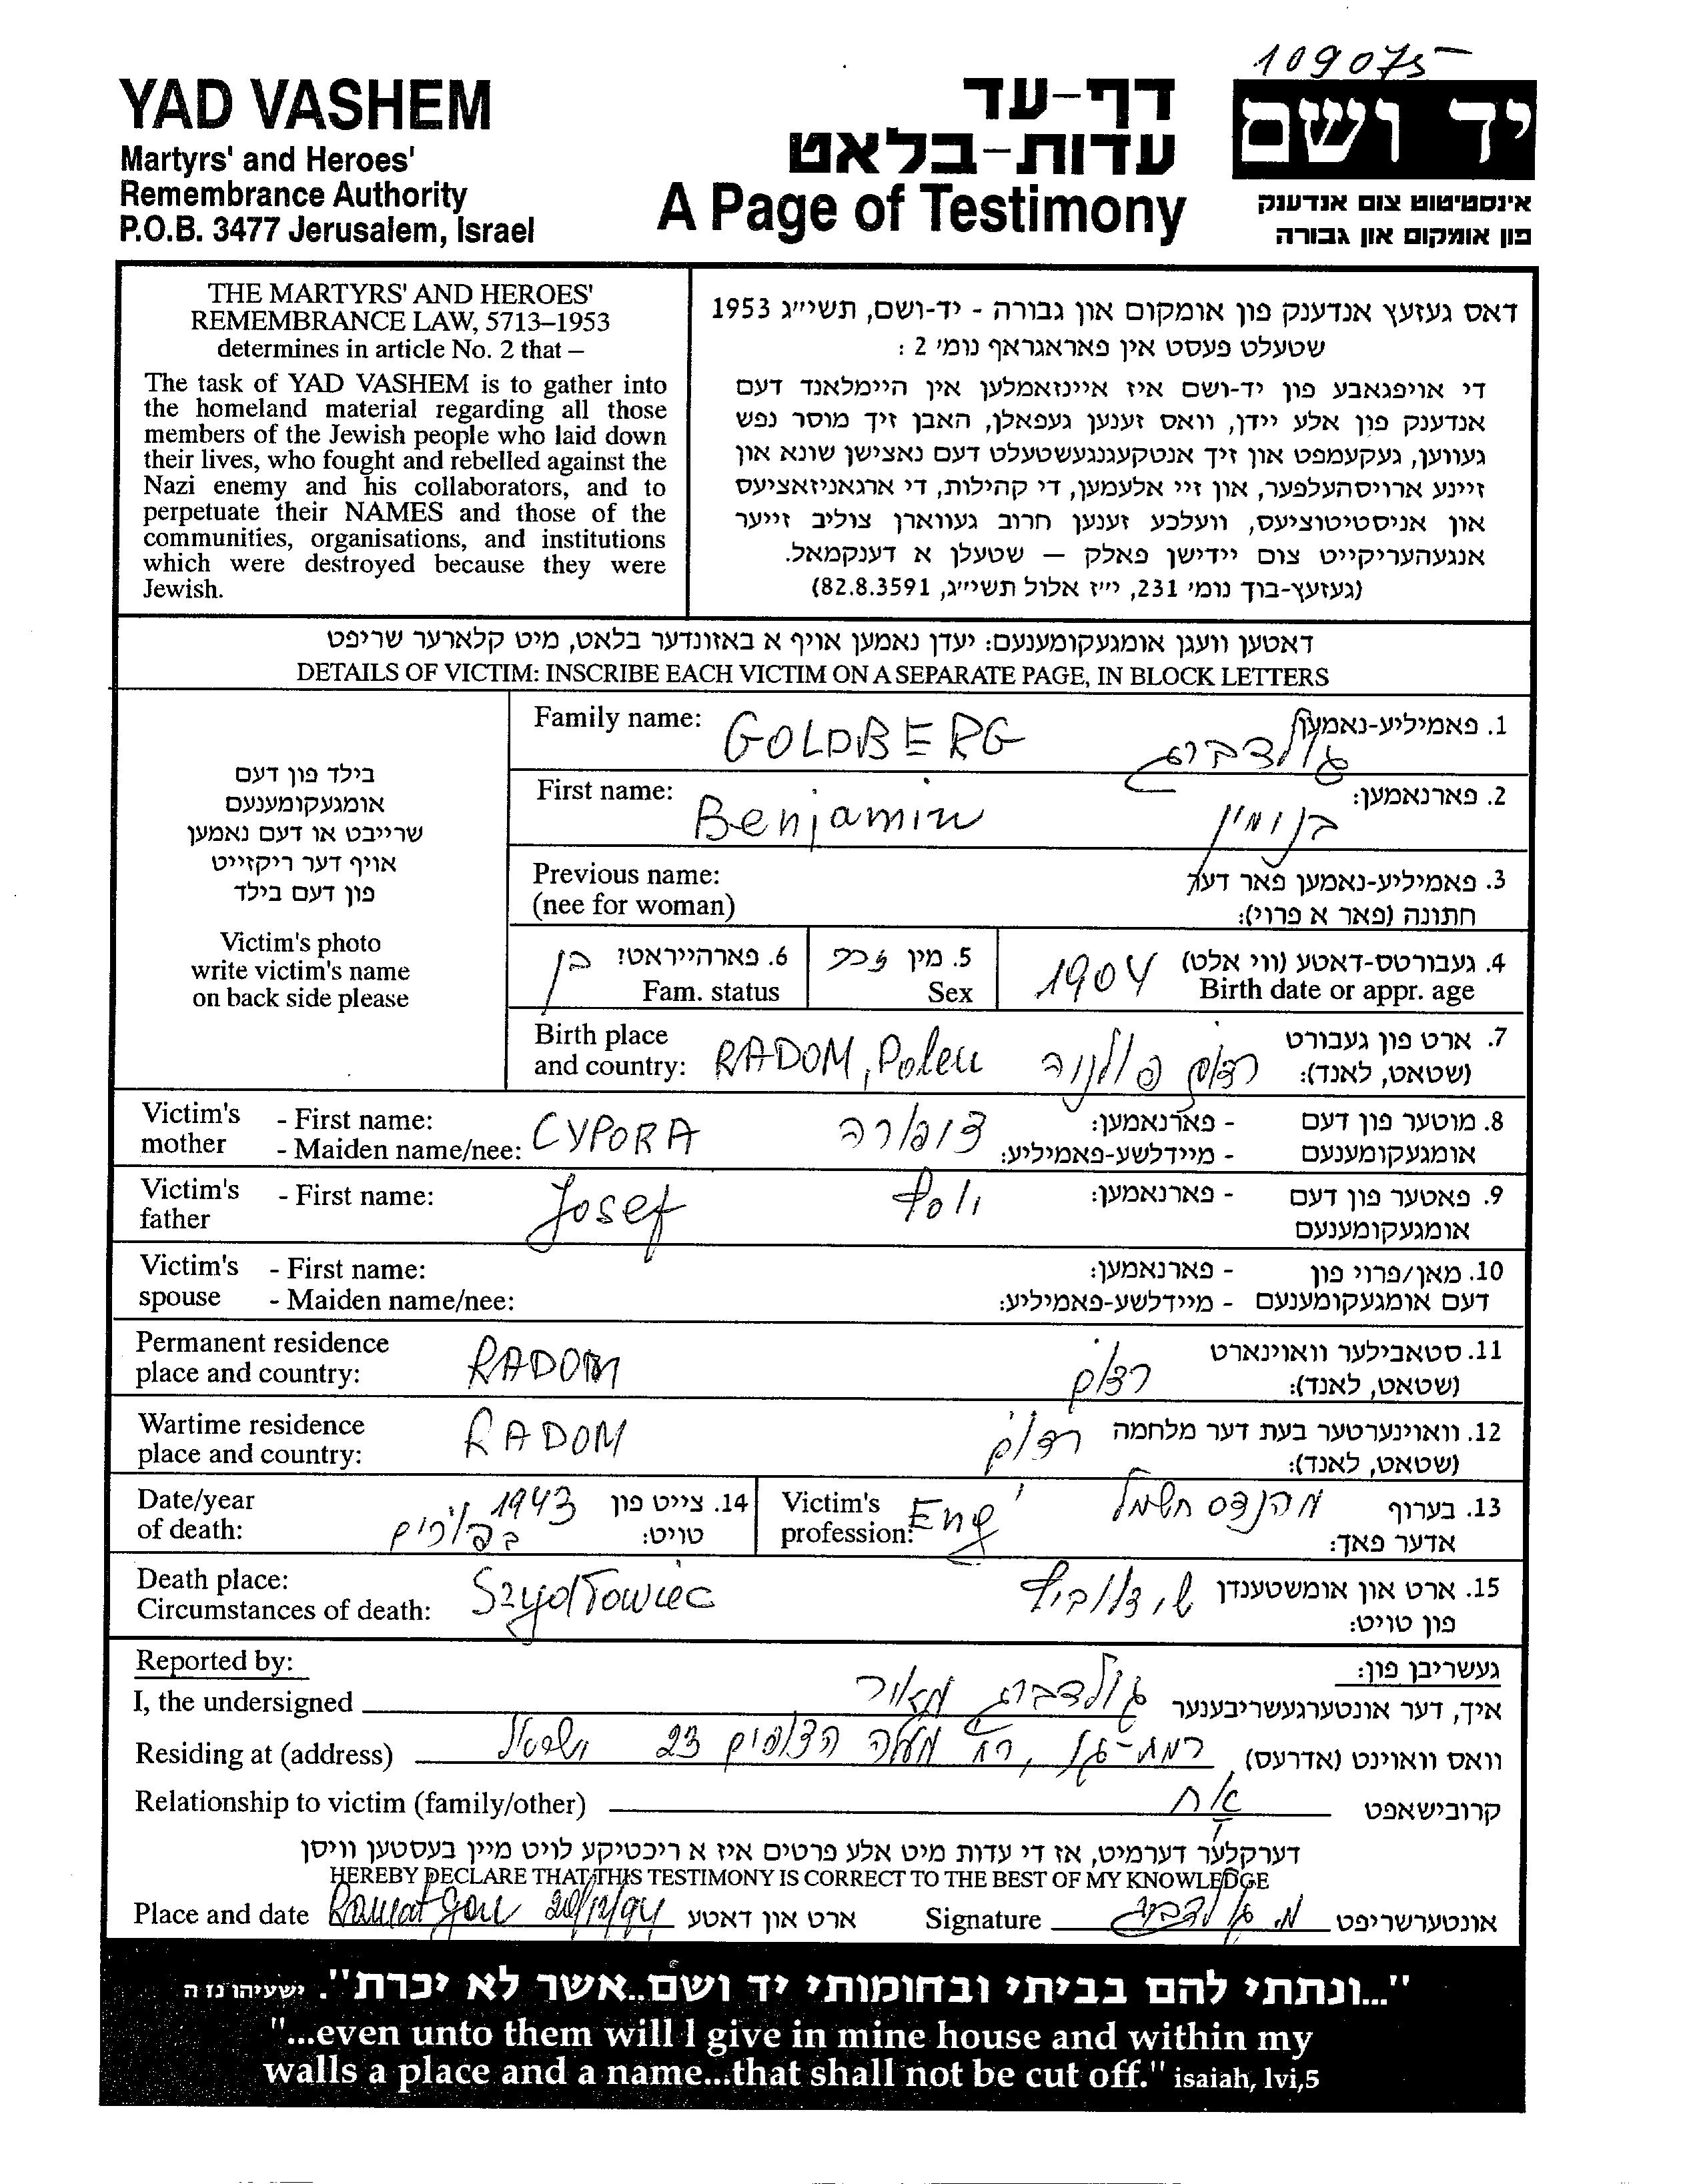 109075
YAD VASHEM
Martyrs' and Heroes'
Remembrance Authority
P.O.B. 3477 Jerusalem, Israel
דף-עד
עדות-בלאט
A Page of Testimony
יד ושם
אינסטיטוט צום אנדענק
פון אומקום און גבורה
THE MARTYRS' AND HEROES'
REMEMBRANCE LAW, 5713–1953
determines in article No. 2 that –
The task of YAD VASHEM is to gather into
the homeland material regarding all those
members of the Jewish people who laid down
their lives, who fought and rebelled against the
Nazi enemy and his collaborators, and to
perpetuate their NAMES and those of the
communities, organisations, and institutions
which were destroyed because they were
Jewish.
דאס געזעץ אנדענק פון אומקום און גבורה - יד-ושם, תשי״ג 1953
שטעלט פעסט אין פאראגראף נומ׳ 2 :
די אויפגאבע פון יד-ושם איז איינזאמלען אין היימלאנד דעם
אנדענק פון אלע יידן, וואס זענען געפאלן, האבן זיך מוסר נפש
געווען, געקעמפט און זיך אנטקעגנגעשטעלט דעם נאצישן שונא און
זיינע ארויסהעלפער, און זיי אלעמען, די קהילות, די ארגאניזאציעס
און אניסטיטוציעס, וועלכע זענען חרוב געווארן צוליב זייער
אנגעהעריקייט צום יידישן פאלק – שטעלן א דענקמאל.
(געזעץ-בוך נומ׳ 231, י״ז אלול תשי״ג, 82.8.3591)
דאטען וועגן אומגעקומענעם: יעדן נאמען אויף א באזונדער בלאט, מיט קלארער שריפט
DETAILS OF VICTIM: INSCRIBE EACH VICTIM ON A SEPARATE PAGE, IN BLOCK LETTERS
בילד פון דעם
אומגעקומענעם
שרייבט או דעם נאמען
אויף דער ריקזייט
פון דעם בילד
Victim's photo
write victim's name
on back side please
Family name: GOLDBERG גולדברג 1. פאמיליע-נאמען
First name: Benjamin בנימין 2. פארנאמען:
Previous name: 3. פאמיליע-נאמען פאר דער
(nee for woman) חתונה (פאר א פרוי):
בן 6. פארהייראט? זכר 5. מין 1904 4. געבורטס-דאטע (ווי אלט)
Fam. status Sex Birth date or appr. age
Birth place 7. ארט פון געבורט
and country: RADOM, Polen רדום פולניה (שטאט, לאנד):
Victim's - First name: - פארנאמען: 8. מוטער פון דעם
mother - Maiden name/nee: CYPORA ציפורה - מיידלשע-פאמיליע: אומגעקומענעם
Victim's - First name: Josef יוסף - פארנאמען: 9. פאטער פון דעם
father אומגעקומענעם
Victim's - First name: - פארנאמען: 10. מאן/פרוי פון
spouse - Maiden name/nee: - מיידלשע-פאמיליע: דעם אומגעקומענעם
Permanent residence 11. סטאבילער וואוינארט
place and country: RADOM רדום (שטאט, לאנד):
Wartime residence 12. וואוינערטער בעת דער מלחמה
place and country: RADOM רדום (שטאט, לאנד):
Date/year 1943 14. צייט פון Victim's Eng' מהנדס חשמל 13. בערוף
of death: בפורים טויט: profession: אדער פאך:
Death place: Szydłowiec שידלוביץ 15. ארט און אומשטענדן
Circumstances of death: פון טויט:
Reported by: געשריבן פון:
I, the undersigned גולדברג מאיר איך, דער אונטערגעשריבענער
Residing at (address) רמת-גן, רח' מעלה הצופים 23 ישראל וואס וואוינט (אדרעס)
Relationship to victim (family/other) אח קרובישאפט
דערקלער דערמיט, אז די עדות מיט אלע פרטים איז א ריכטיקע לויט מיין בעסטען וויסן
HEREBY DECLARE THAT THIS TESTIMONY IS CORRECT TO THE BEST OF MY KNOWLEDGE
Place and date Ramat Gan 20/12/94 ארט און דאטע Signature מ. גולדברג אונטערשריפט
"...ונתתי להם בביתי ובחומותי יד ושם..אשר לא יכרת". ישעיהו נז ה
"...even unto them will I give in mine house and within my
walls a place and a name...that shall not be cut off." isaiah, lvi,5